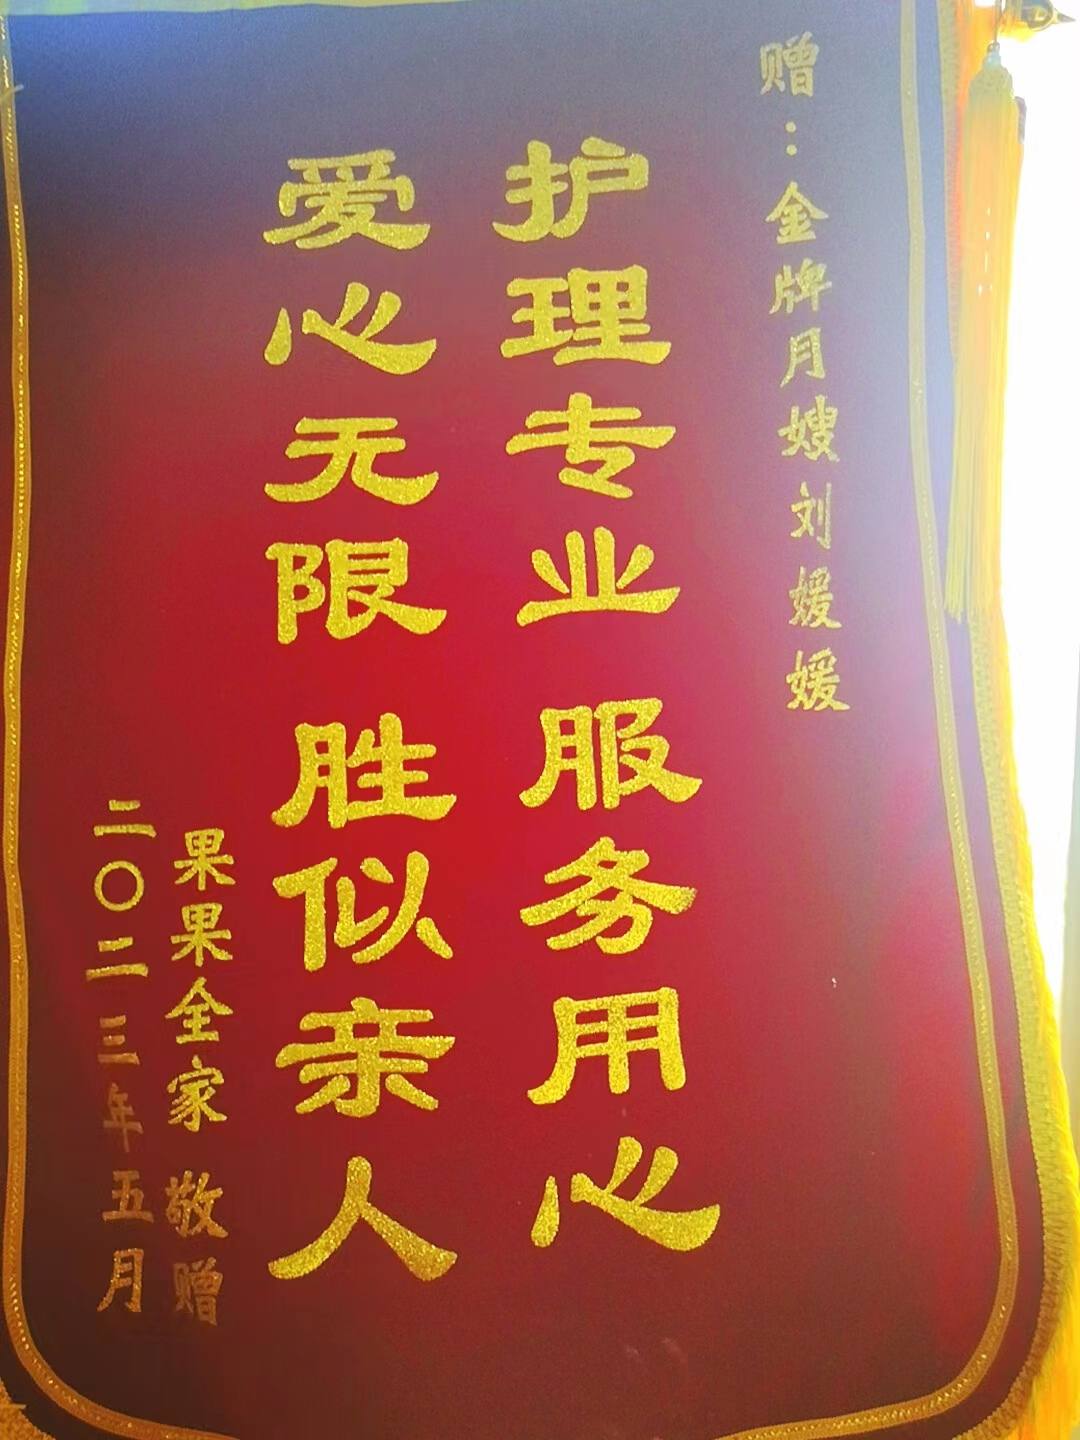 赠：金牌月嫂刘媛媛
护理专业 服务用心
爱心无限 胜似亲人
果果全家 敬赠
二〇二三年五月